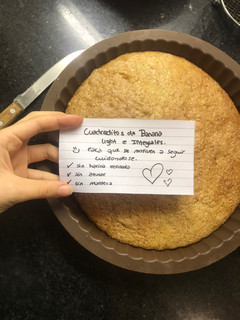 Cuadraditos de Banana
light e integrales.
Para que se motiven a seguir
cuidandose.
✓ sin harina refinada
✓ sin azucar
✓ sin manteca